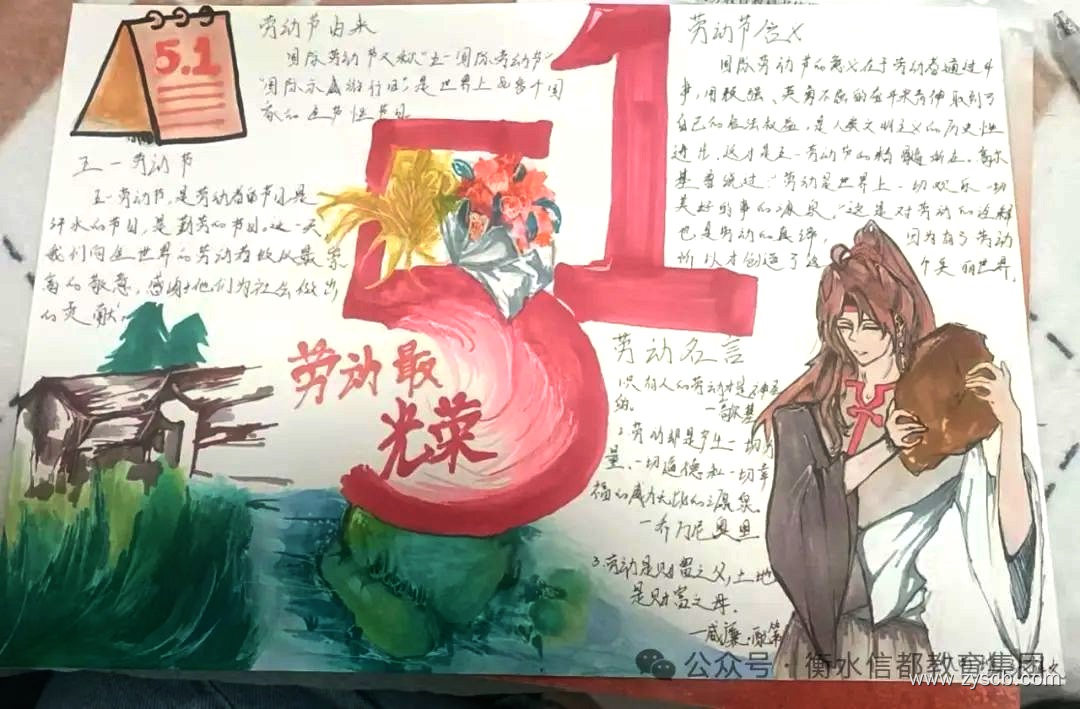 5.1
劳动节由来
国际劳动节又称"五一国际劳动节"
"国际示威游行日"是世界上80多个国
家的全国性节日
五一劳动节
五一劳动节,是劳动者的节日是
汗水的节日,是勤劳的节日。这一天
我们向全世界的劳动者致以最崇
高的敬意,感谢他们为社会做出
的贡献。
51
劳动最
光荣
劳动节含义
国际劳动节的意义在于劳动者通过斗
争,用顽强、英勇不屈的奋斗 取到了
自己的合法权益,是人类文明主义的历史性
进步,这才是五一劳动节的精髓所在。高尔
基曾说过:"劳动是世界上一切欢乐一切
美好的事的源泉,"这是对劳动的诠释
也是劳动的真谛, 因为有了劳动
所以才创造了这 个美丽世界。
劳动名言
1.只有人的劳动才是神圣
的。 —高尔基
2.劳动却是产生一切力
量、一切道德和一切幸
福的 源泉。
—乔万尼奥里
3.劳动是财富之父,土地
是财富之母。
—威廉·配第
公众号·衡水信都教育集团
www.zyscbl.com